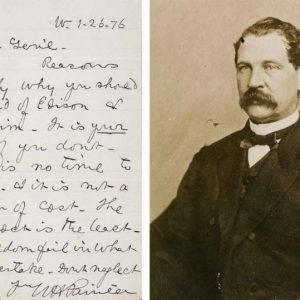 W. 1-26-76
Gen'l -
Reasons
why you should
of Edison &
him. It is your
if you don't -
is no time to
& it is not a
of cost. The
cost is the least -
seldom fail in what
undertake. Don't neglect